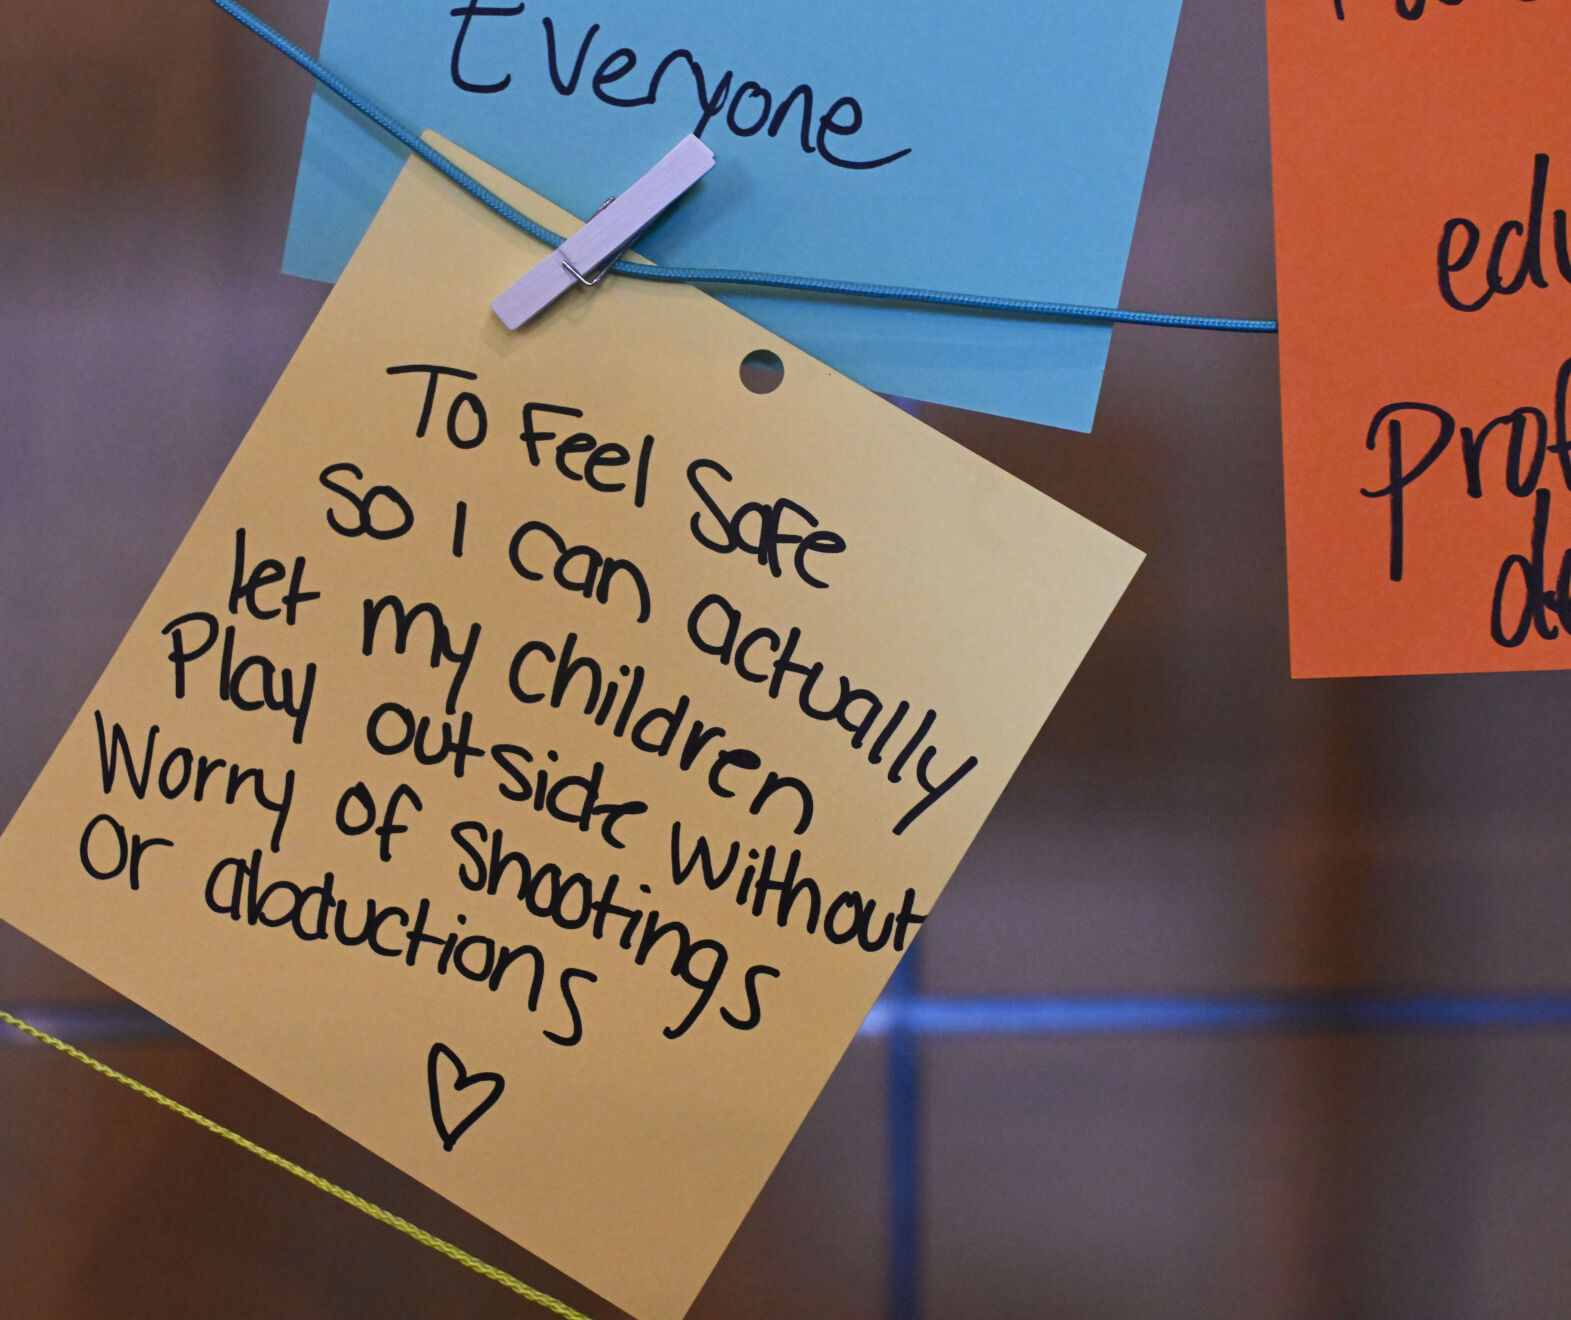 Everyone
To Feel Safe
So I can actually
let my children
Play outside without
Worry of shootings
Or abductions